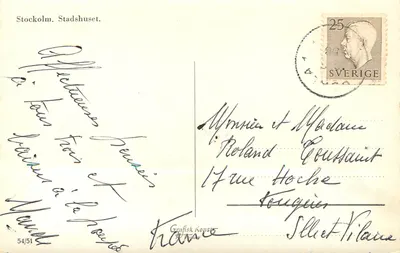 Stockolm, Stadshuset.
Affectueuses pensées
à tous trois et
baisers à la poupée
25
SVERIGE
Monsieur et Madame
Roland Toussaint
17 rue Hoche
Fougères
Ille et Vilaine
France
54/51